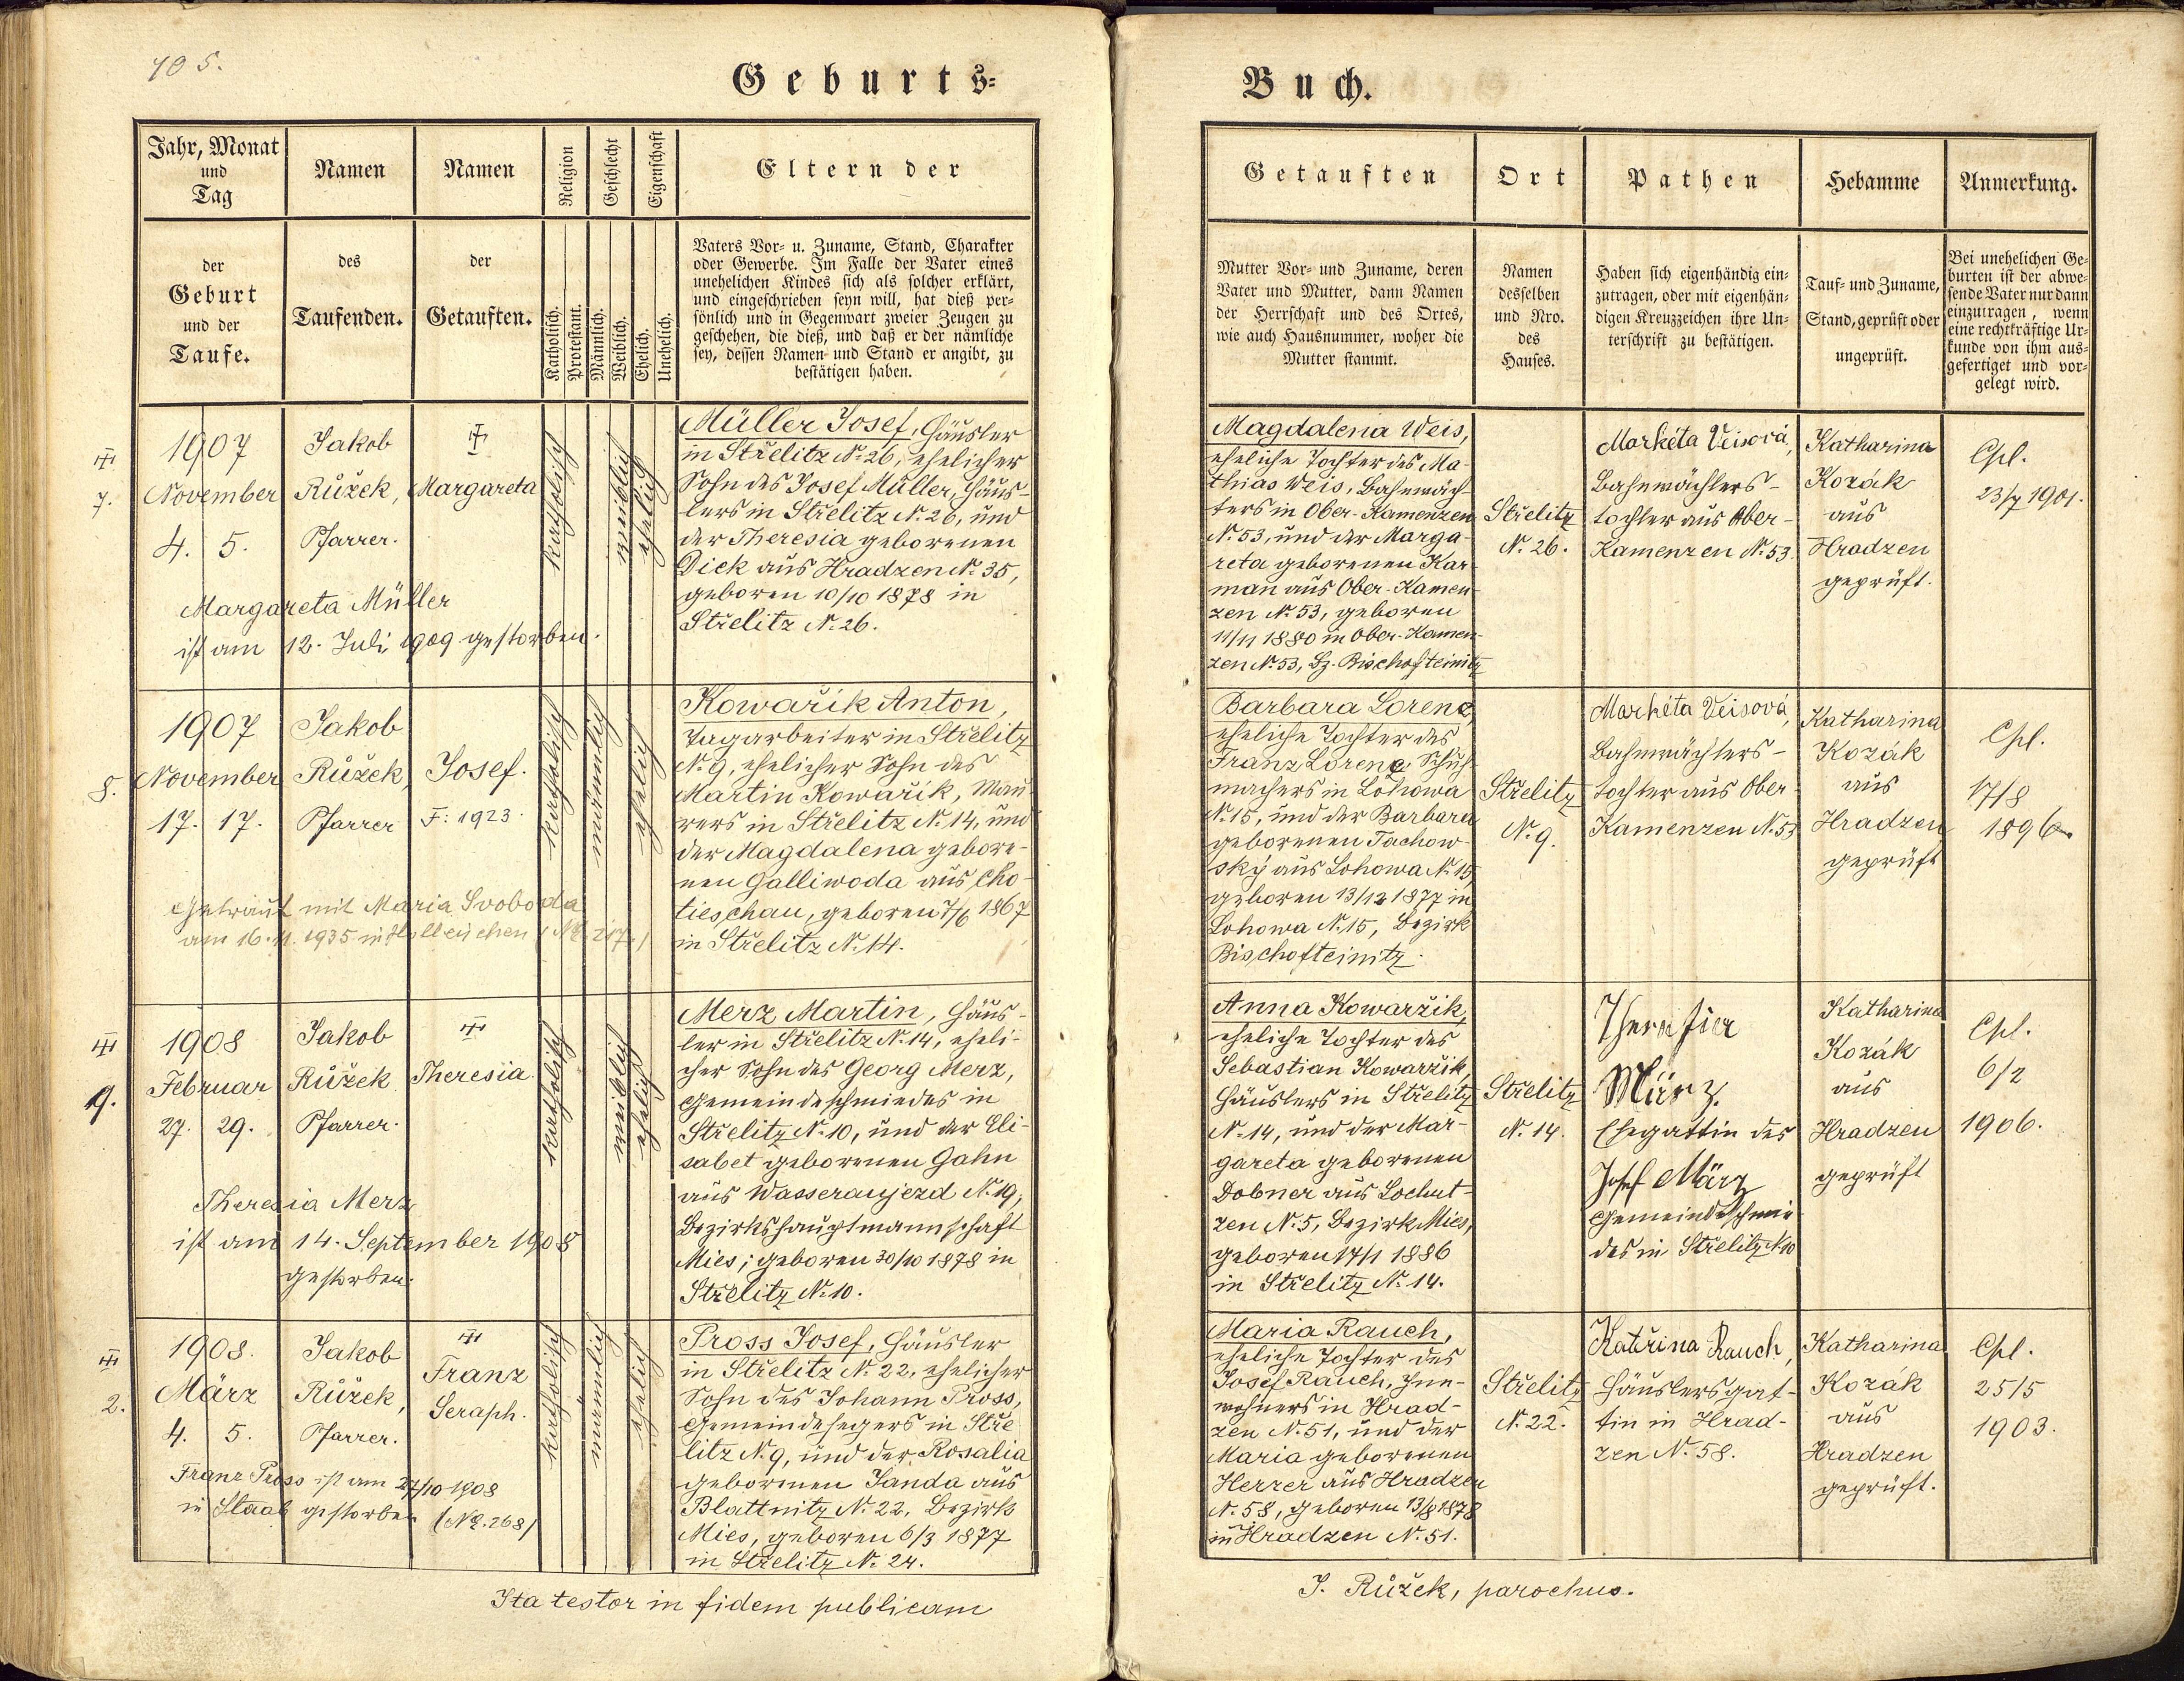 105.
Geburts-
Buch.
Jahr, Monat
und
Tag
Namen
Namen
Religion
Geschlecht
Eigenschaft
Eltern der
der
Geburt
und der
Taufe.
des
Taufenden.
der
Getauften.
Katholisch.
Protestant.
Männlich.
Weiblich.
Ehelich.
Unehelich.
Vaters Vor- u. Zuname, Stand, Charakter
oder Gewerbe. Im Falle der Vater eines
unehelichen Kindes sich als solcher erklärt,
und eingeschrieben seyn will, hat dieß per-
sönlich und in Gegenwart zweier Zeugen zu
geschehen, die dieß, und daß er der nämliche
sey, dessen Namen und Stand er angibt, zu
bestätigen haben.
Getauften
Ort
Pathen
Hebamme
Anmerkung.
Mutter Vor- und Zuname, deren
Vater und Mutter, dann Namen
der Herrschaft und des Ortes,
wie auch Hausnummer, woher die
Mutter stammt.
Namen
desselben
und Nro.
des
Hauses.
Haben sich eigenhändig ein-
zutragen, oder mit eigenhän-
digen Kreuzzeichen ihre Un-
terschrift zu bestätigen.
Tauf- und Zuname,
Stand, geprüft oder
ungeprüft.
Bei unehelichen Ge-
burten ist der abwe-
sende Vater nur dann
einzutragen, wenn
eine rechtkräftige Ur-
kunde von ihm aus-
gefertiget und vor-
gelegt wird.
7.
1907
November
4. 5.
Jakob
Růžek,
Pfarrer.
Margareta
katholisch
weiblich
ehelich
Margareta Müller
ist am 12. Juli 1909 gestorben.
Müller Josef, Häusler
in Střelitz N. 26, ehelicher
Sohn des Josef Müller, Häus-
lers in Střelitz N. 26, und
der Theresia geborenen
Dick aus Hradzen N. 35,
geboren 10/10 1878 in
Střelitz N. 26.
Magdalena Weis,
eheliche Tochter des Ma-
thias Weis, Bahnwäch-
ters in Ober-Kamenzen
N. 53, und der Marga-
reta geborenen Kar-
man aus Ober-Kamen-
zen N. 53, geboren
11/11 1880 in Ober-Kamen-
zen N. 53, Bz. Bischofteinitz
Střelitz
N. 26.
Markéta Veisová,
Bahnwächters-
tochter aus Ober-
Kamenzen N. 53.
Katharina
Kozák
aus
Hradzen
geprüft.
Cpl.
23/7 1901.
8.
1907
November
17. 17.
Jakob
Růžek,
Pfarrer
Josef.
F: 1923.
katholisch
männlich
ehelich
Getraut mit Maria Svoboda
am 16. 11. 1935 in Holleischen (NE 217.)
Kowařik Anton,
Tagarbeiter in Střelitz
N. 9, ehelicher Sohn des
Martin Kowařik, Mau-
rers in Střelitz N. 14, und
der Magdalena gebore-
nen Galliwoda aus Cho-
tieschau, geboren 7/6 1867
in Střelitz N. 14.
Barbara Lorenz,
eheliche Tochter des
Franz Lorenz, Schuh-
machers in Lohowa
N. 15, und der Barbara
geborenen Tachow-
ský aus Lohowa N. 15,
geboren 13/12 1877 in
Lohowa N. 15, Bezirk
Bischofteinitz.
Střelitz
N. 9.
Markéta Veisová,
Bahnwächters-
tochter aus Ober-
Kamenzen N. 53
Katharina
Kozák
aus
Hradzen
geprüft
Cpl.
17/8
1896.
9.
1908
Februar
27. 29.
Jakob
Růžek
Pfarrer.
Theresia.
katholisch
weiblich
ehelich
Theresia Merz
ist am 14. September 1908
gestorben.
Merz Martin, Häus-
ler in Střelitz N. 14, eheli-
cher Sohn des Georg Merz,
Gemeindeschmiedes in
Střelitz N. 10, und der Eli-
sabet geborenen Gahn
aus Wasseraujezd N. 19,
Bezirkshauptmannschaft
Mies; geboren 30/10 1878 in
Střelitz N. 10.
Anna Kowaržik,
eheliche Tochter des
Sebastian Kowaržik,
Häuslers in Střelitz
N. 14, und der Mar-
gareta geborenen
Dobner aus Lochut-
zen N. 5, Bezirk Mies,
geboren 17/1 1886
in Střelitz N. 14.
Střelitz
N. 14.
März.
Ehegattin des
Josef März
Gemeindeschmie-
des in Střelitz N 10
Katharina
Kozák
aus
Hradzen
geprüft
Cpl.
6/2
1906.
2.
1908.
März
4. 5.
Jakob
Růžek,
Pfarrer.
Franz
Seraph.
katholisch
männlich
ehelich
Franz Pross ist am 27/10 1908
in Staab gestorben (NE. 268)
Pross Josef, Häusler
in Střelitz N. 22, ehelicher
Sohn des Johann Pross,
Gemeindehegers in Stře-
litz N. 9, und der Rosalia
geborenen Janda aus
Blattnitz N. 22, Bezirk
Mies, geboren 6/3 1877
in Střelitz N. 24.
Maria Rauch,
eheliche Tochter des
Josef Rauch, Inn-
wohners in Hrad-
zen N. 51, und der
Maria geborenen
Herrer aus Hradzen
N. 58, geboren 13/8 1878
in Hradzen N. 51.
Střelitz
N. 22.
Kateřina Rauch,
Häuslersgat-
tin in Hrad-
zen N. 58.
Katharina
Kozák
aus
Hradzen
geprüft.
Cpl.
25/5
1903.
Ita testor in fidem publicam
J. Růžek, parochus.